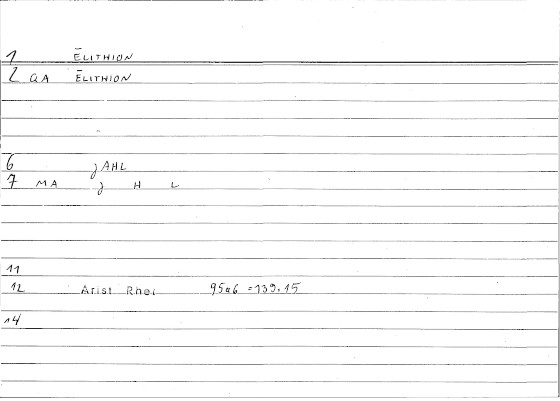 1 ĒLITHION
2 QA ĒLITHION
6 jAHL
7 MA j H L
11
12 Arist Rhei 95a6 =139.15
14